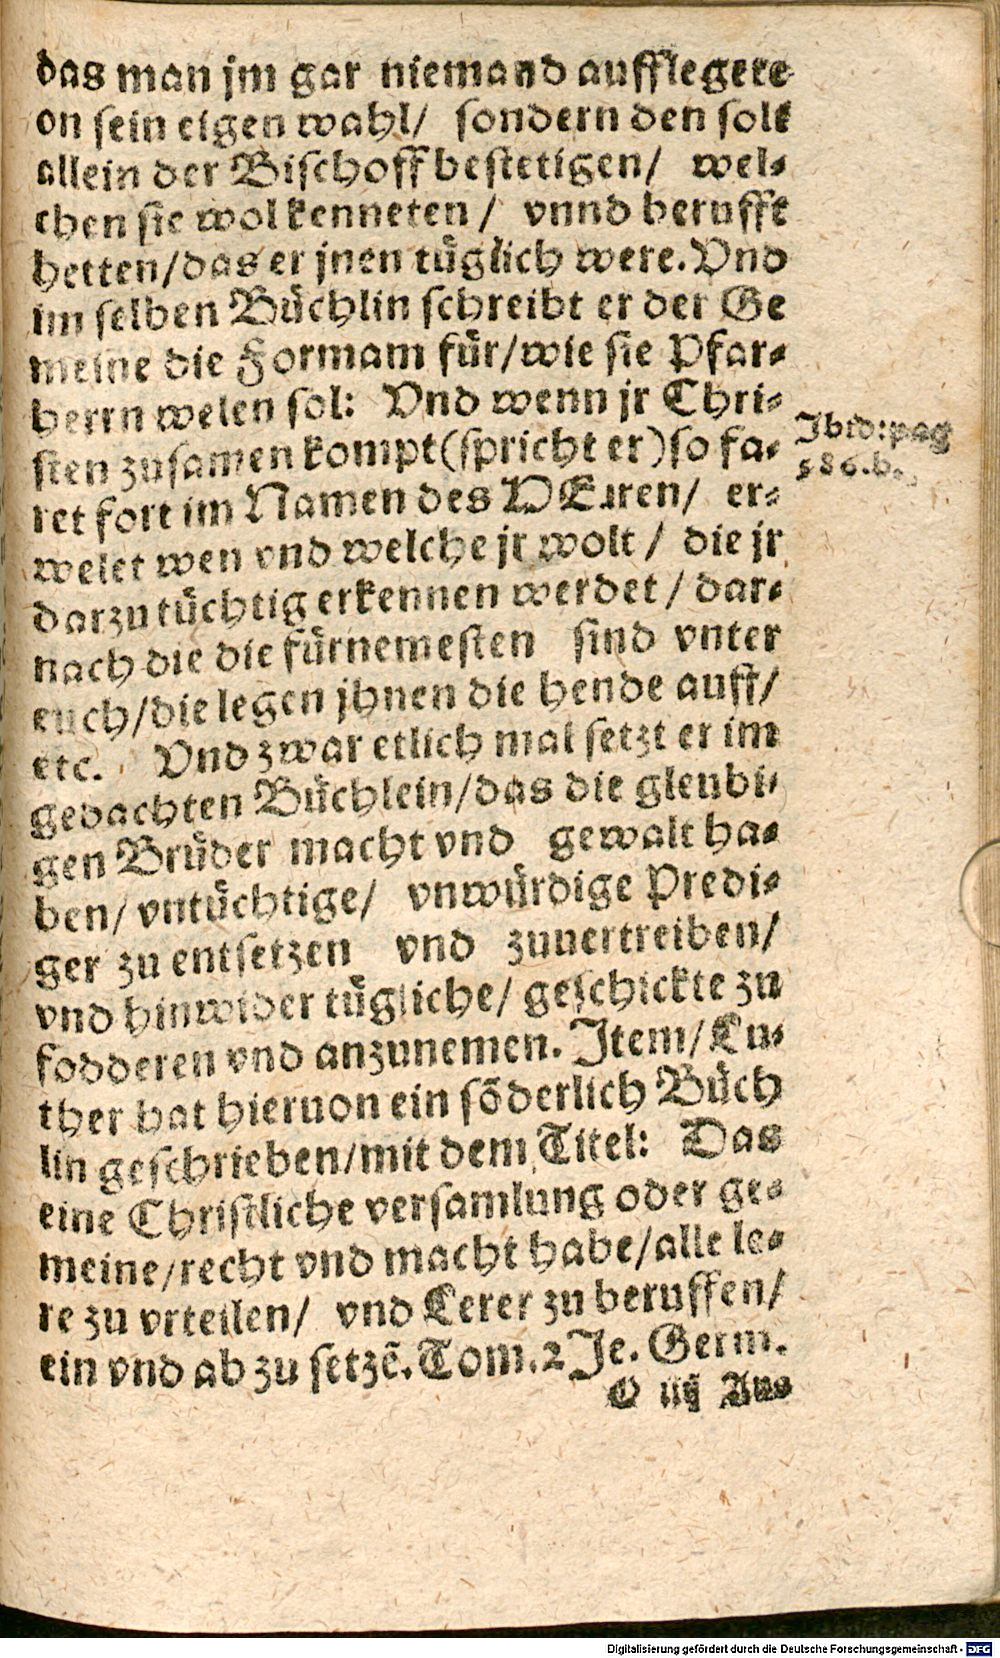 das man jm gar niemand aufflegete
on sein eigen wahl/ sondern den solt
allein der Bischoff bestetigen/ wel-
chen sie wol kenneten / vnnd berufft
hetten/das er jnen tüglich were. Vnd
im selben Büchlin schreibt er der Ge
meine die Formam für/wie sie Pfar-
herrn welen sol: Vnd wenn jr Chri-
sten zusamen kompt(spricht er)so fa-
ret fort im Namen des HErren/ er-
welet wen vnd welche jr wolt / die jr
darzu tüchtig erkennen werdet / dar-
nach die die fürnemesten sind vnter
euch/die legen jhnen die hende auff/
etc. Vnd zwar etlich mal setzt er im
gedachten Büchlein/das die gleubi-
gen Brüder macht vnd gewalt ha-
ben/ vntüchtige/ vnwürdige Predi-
ger zu entsetzen vnd zuuertreiben/
vnd hinwider tügliche/ geschickte zu
fodderen vnd anzunemen. Item/Lu-
ther hat hieruon ein sõderlich Büch
lin geschrieben/mit dem Titel: Das
eine Christliche versamlung oder ge-
meine/recht vnd macht habe/alle le-
re zu vrteilen/ vnd Lerer zu beruffen/
ein vnd ab zu setzẽ. Tom.2 Je. Germ.
Ibid: pag
586.b.
O iiij Aus
Digitalisierung gefördert durch die Deutsche Forschungsgemeinschaft - DFG